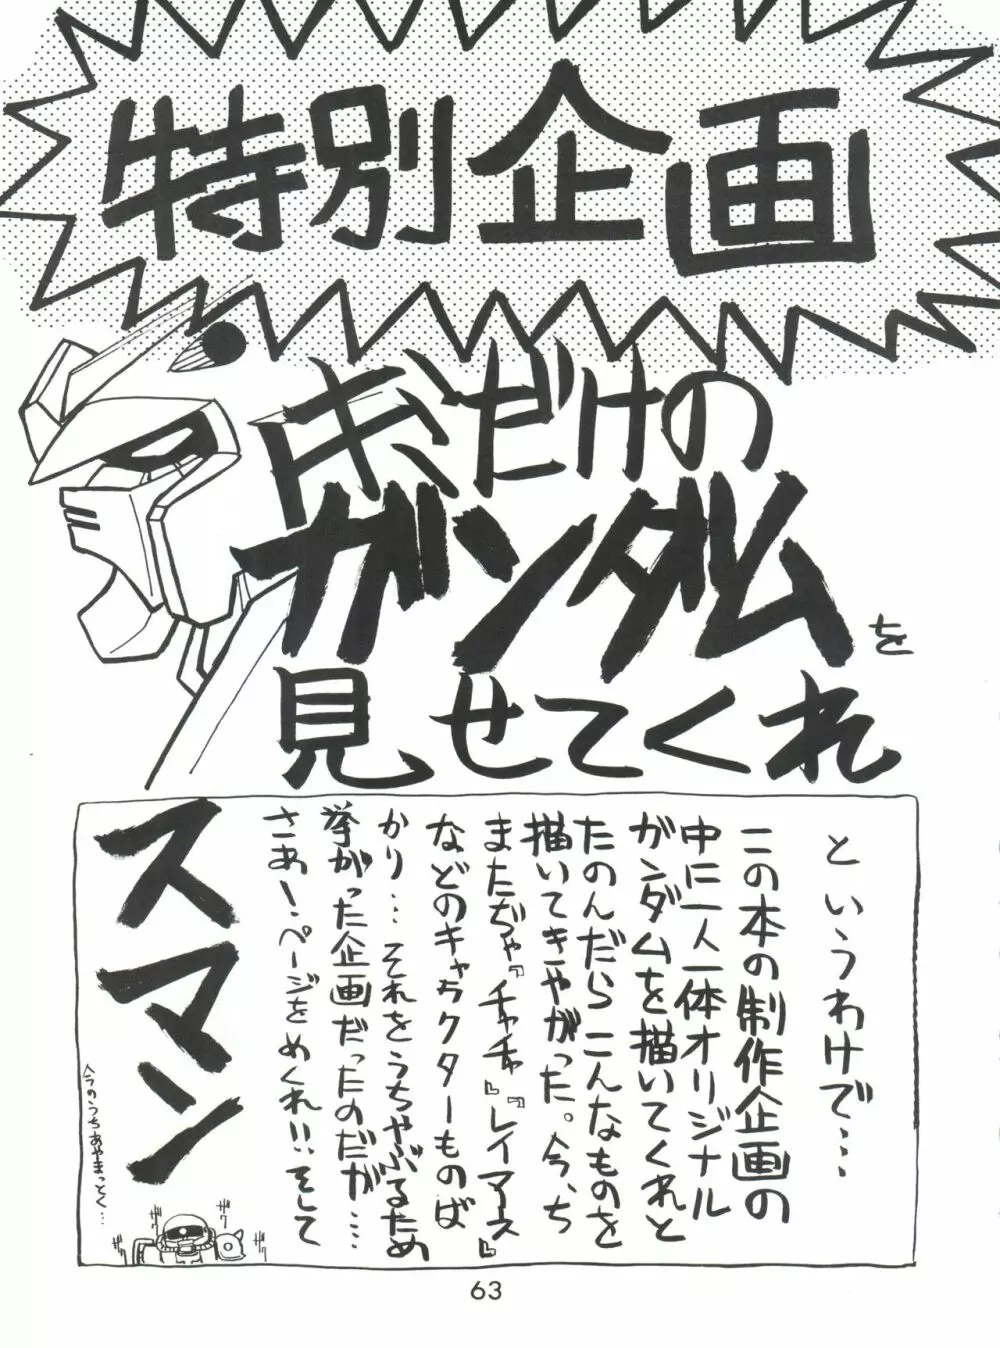 特別企画
キミだけの
ガンダムを
見せてくれ
というわけで…
この本の制作企画の
中に一人一体オリジナル
ガンダムを描いてくれと
たのんだらこんなものを
描いてきやがった。今、ち
またぢゃ『チャチャ』『レイアース』
などのキャラクターものば
かり…それをうちやぶるため
挙がった企画だったのだが…
さあ!ページをめくれ!!そして
スマン
今のうちあやまっとく…
ザワ
ザワ
ザワ
ザワ
63